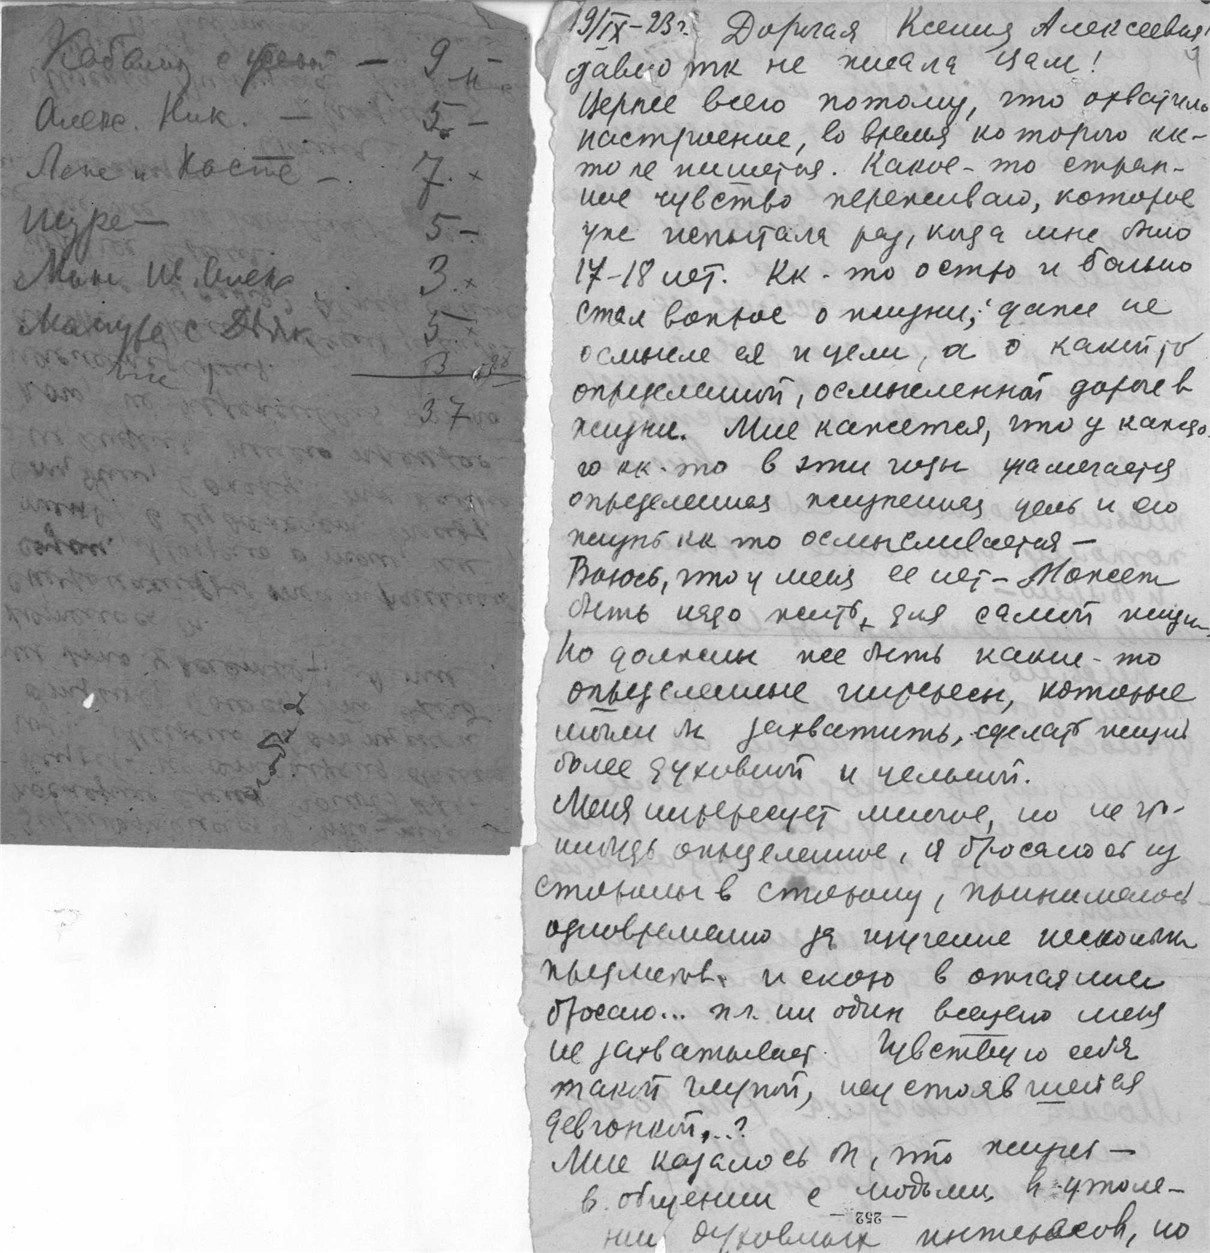 Алекс. Ник. — 5 –
Лене и Косте – 7. ×
Шуре — 5 –
3. ×
5 ×
3
37
19/IX–23 г. Дорогая Ксения Алексеевна!
Давно тк не писала Вам!
всего потому, что охватило
настроение, во время которого кк-
то не пишется. Какое-то стран-
ное чувство переживаю, которое
уже испытала раз, когда мне было
17–18 лет. Кк-то остро и больно
стал вопрос о жизни, даже не
осмысле ея и цели, а о какой то
определенной, осмысленной дороге в
жизни. Мне кажется, что у каждо-
го кк-то в эти годы намечается
определенная жизненная цель и его
жизнь кк то осмысливается —
Боюсь, что у меня ее нет – Может
быть надо жить для самой жизни,
Но должны же быть какие-то
определенные интересы, которые
могли бы захватить, сделать жизнь
более духовной и цельной.
Меня интересует многое, но не что-
нибудь определенное, я бросаюсь из
стороны в сторону, принималась
одновременно за изучение нескольких
предметов и скоро в отчаянии
бросаю... п.ч. ни один всецело меня
не захватывает. Чувствую себя
такой глупой, неустоявшейся
девчонкой...?
Мне казалось бы, что жизнь —
в общении с людьми, в утоле-
нии духовных интересов, но
— 252 —